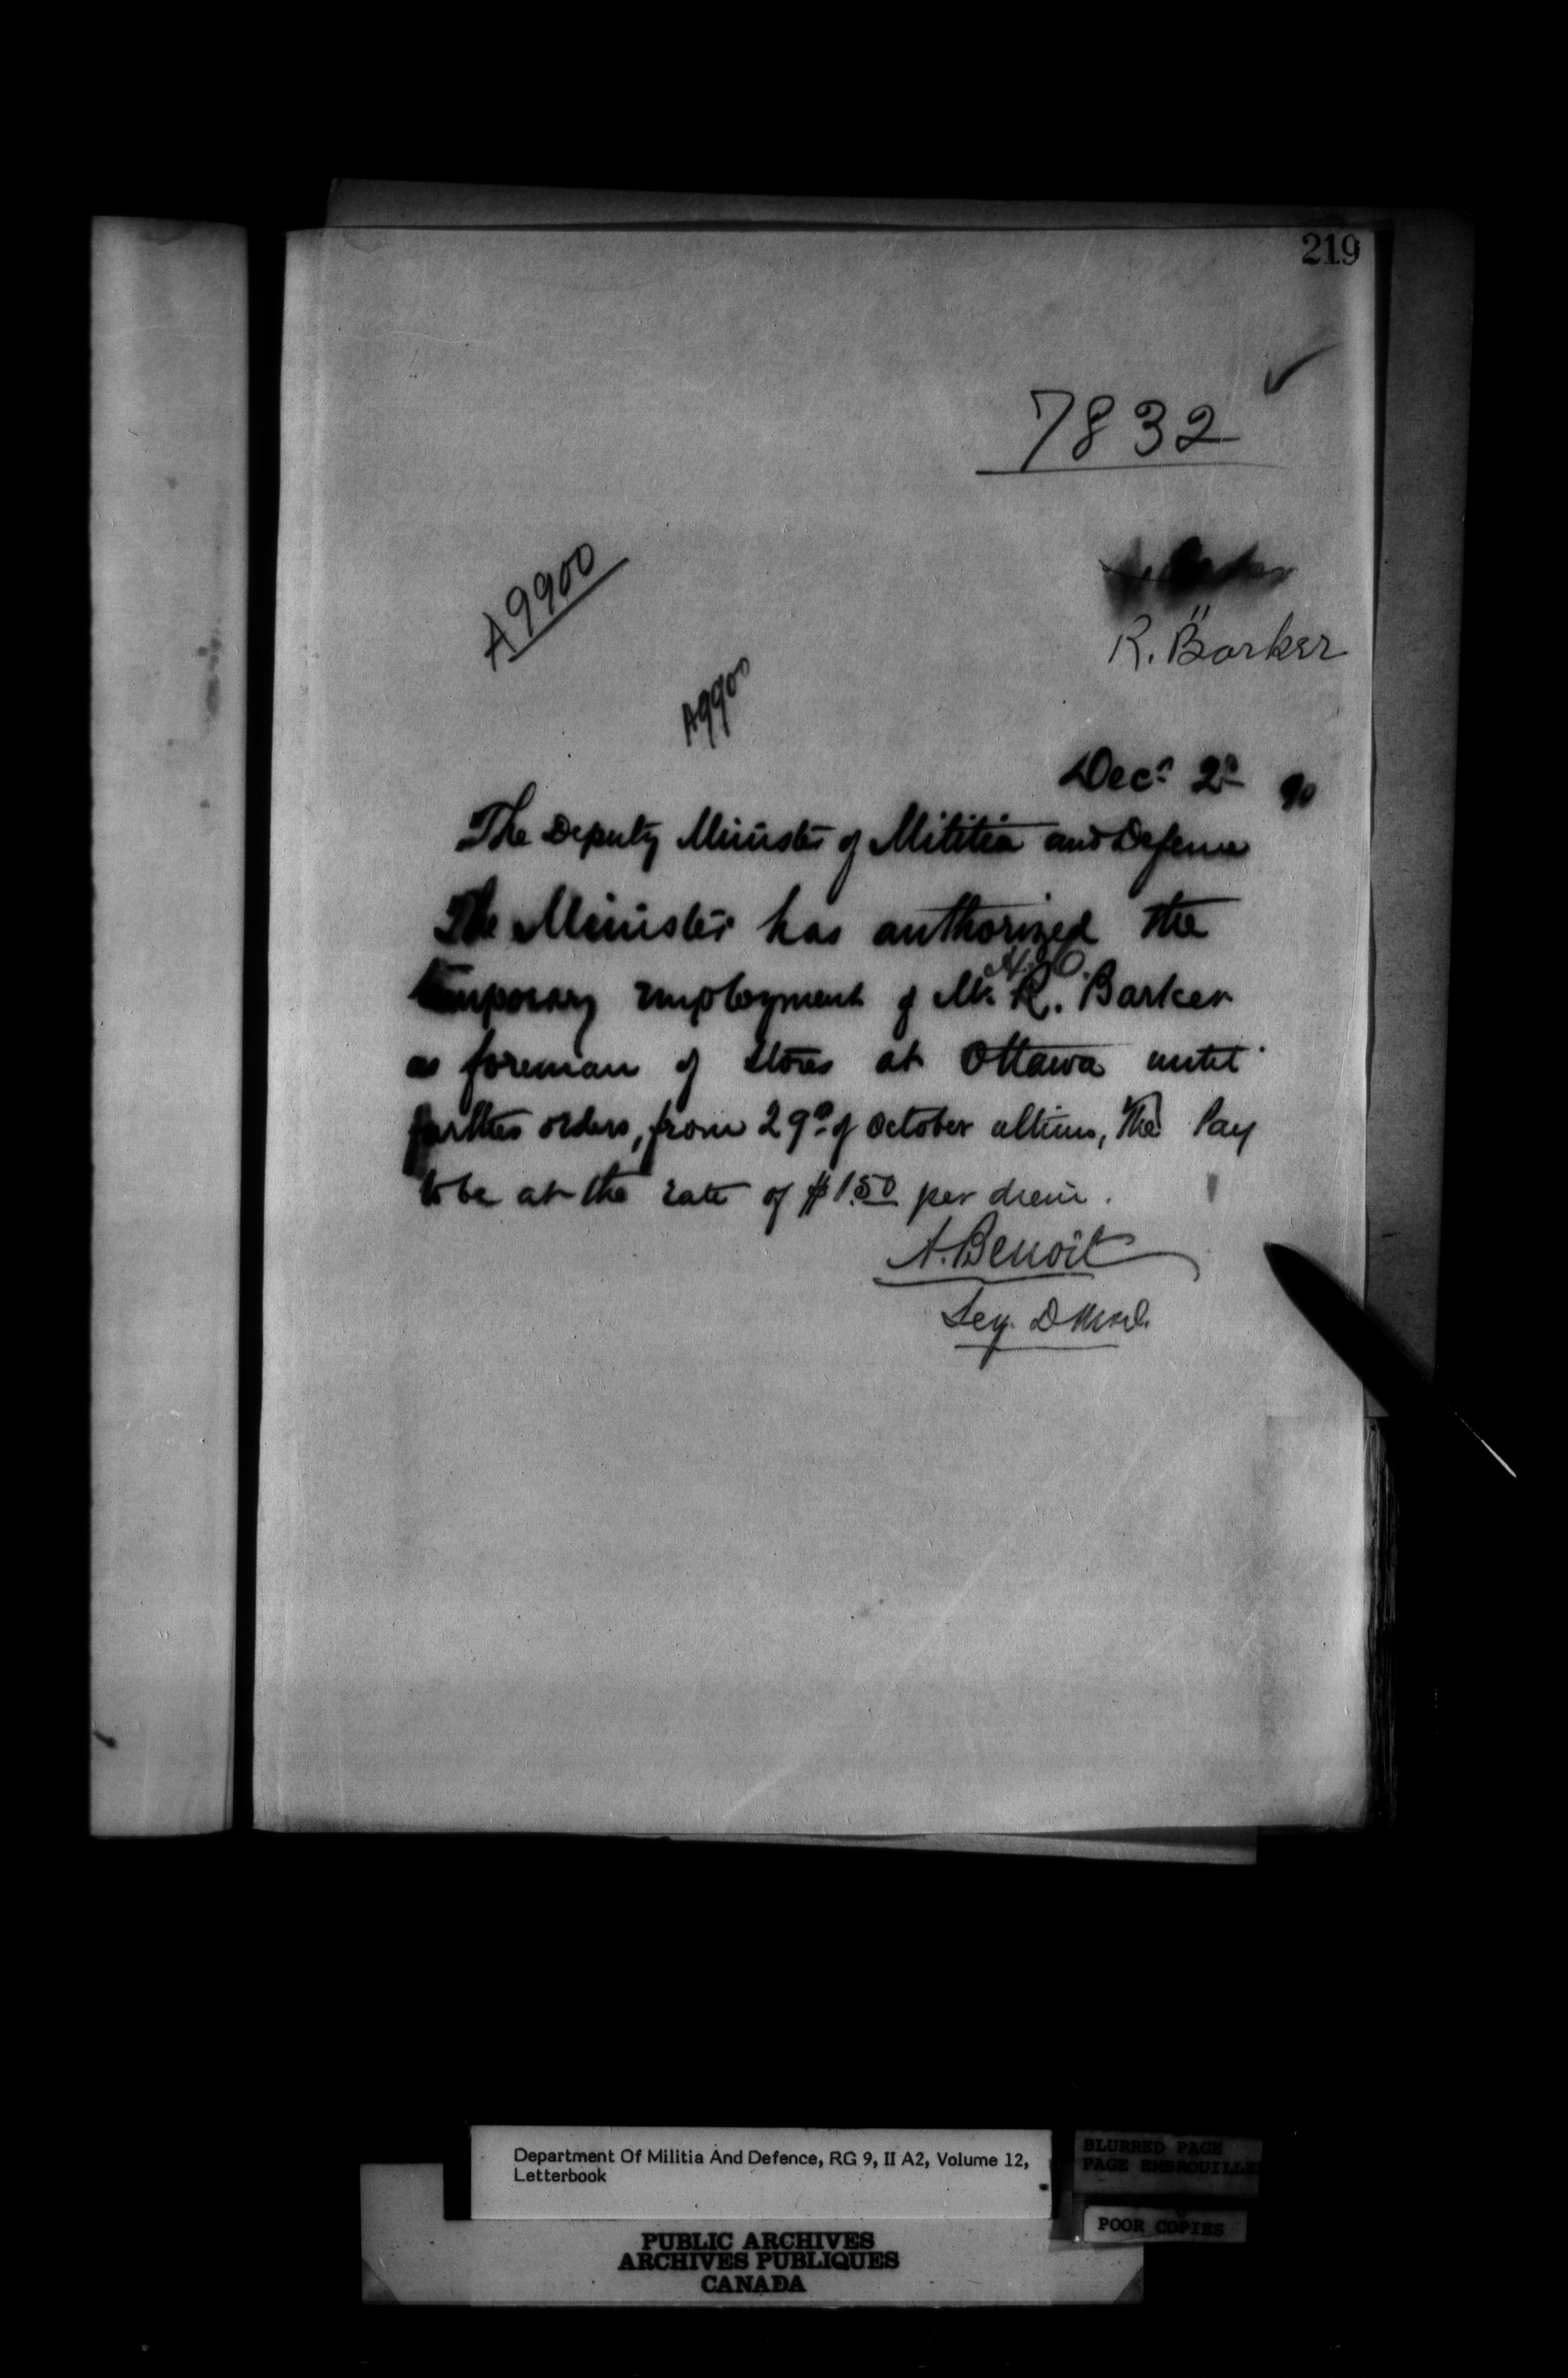 219
7832
A9900
R. Barker
A9900
Decr 2d 90
The Deputy Minister of Militia and Defence
The Minister has authorized the
temporary employment of Mr. R. Barker
as foreman of stores at Ottawa until
further orders, from 29th of October ultimo, the Pay
to be at the rate of $1.50 per diem.
A. Benoit
Secy. D M & D.
Department Of Militia And Defence, RG 9, II A2, Volume 12,
Letterbook
BLURRED PAGE
PAGE EMBROUILLEE
POOR COPIES
PUBLIC ARCHIVES
ARCHIVES PUBLIQUES
CANADA